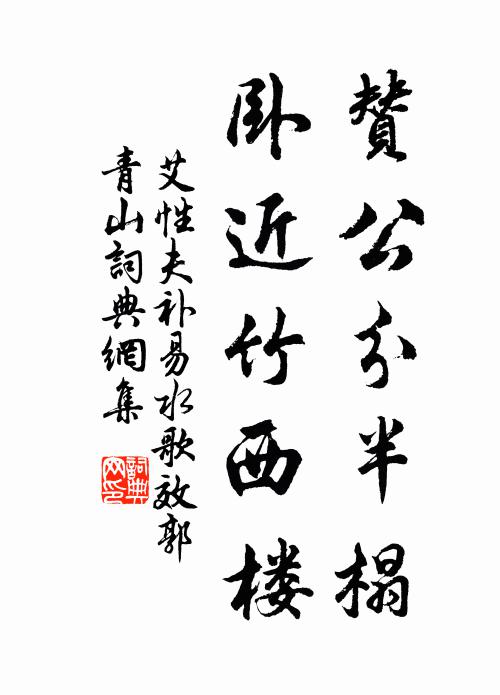 賛公分半榻
卧近竹西楼
艾性夫补易水歌效郭
青山詞典網集
詞典
网印